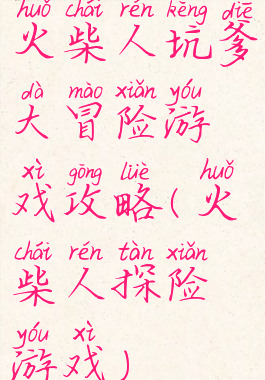 huǒ chái rén kēng diē
火柴人坑爹
dà mào xiǎn yóu
大冒险游
xì gōng lüè huǒ
戏攻略(火
chái rén tàn xiǎn
柴人探险
yóu xì
游戏)